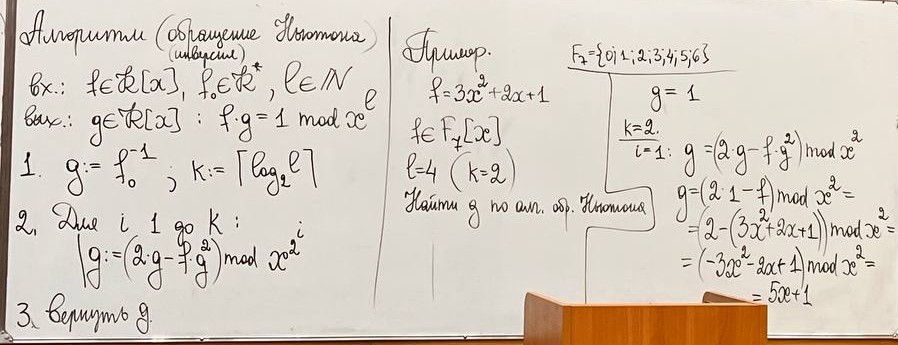 Алгоритм (обращение Ньютона)
(инверсия)
вх.: f∈R[x], f₀∈R*, l∈ℕ
вых.: g∈R[x] : f·g=1 mod x^l
1. g:=f₀⁻¹; k:=⌈log₂l⌉
2. Для i 1 до k:
g:=(2·g-f·g²)mod x^{2^i}
3. Вернуть g.
Пример.
f=3x²+2x+1
f∈F₇[x]
l=4 (k=2)
Найти g по алг. обр. Ньютона
F₇={0;1;2;3;4;5;6}
g=1
k=2.
i=1: g=(2·g-f·g²)mod x²
g=(2·1-f)mod x²=
=(2-(3x²+2x+1))mod x²=
=(-3x²-2x+1)mod x²=
=5x+1